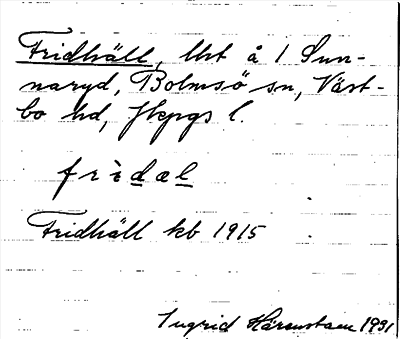 Fridhäll, lht å 1 Sun-
naryd, Bolmsö sn, Väst-
bo hd, Jkpgs l.
fridæl
Fridhäll kb 1915
Ingrid 1991